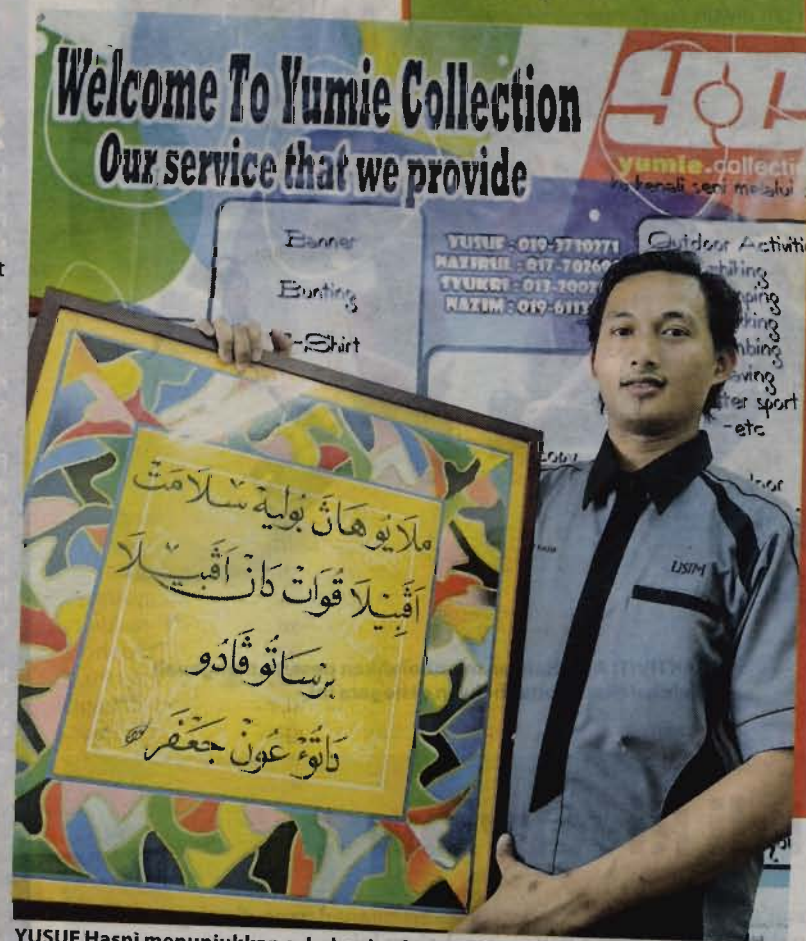 Welcome To Yumie Collection
Our service that we provide
yumie.collecti
kenali seni melalui
Banner
Bunting
-Shirt
YUSUF : 019-3730271
NAZIRUL : 017-70269
SYUKRI : 013-2002
NAZIM : 019-6113
Outdoor Activiti
hiking
ping
king
mbing
aving
ter sport
-etc
copy
USIM
ملايو هاڽ بوليه سلامت
اڤبيلا قوات دان اڤبيلا
برساتو ڤادو
داتوء عون جعفر
YUSUF Hasni menunjukkan